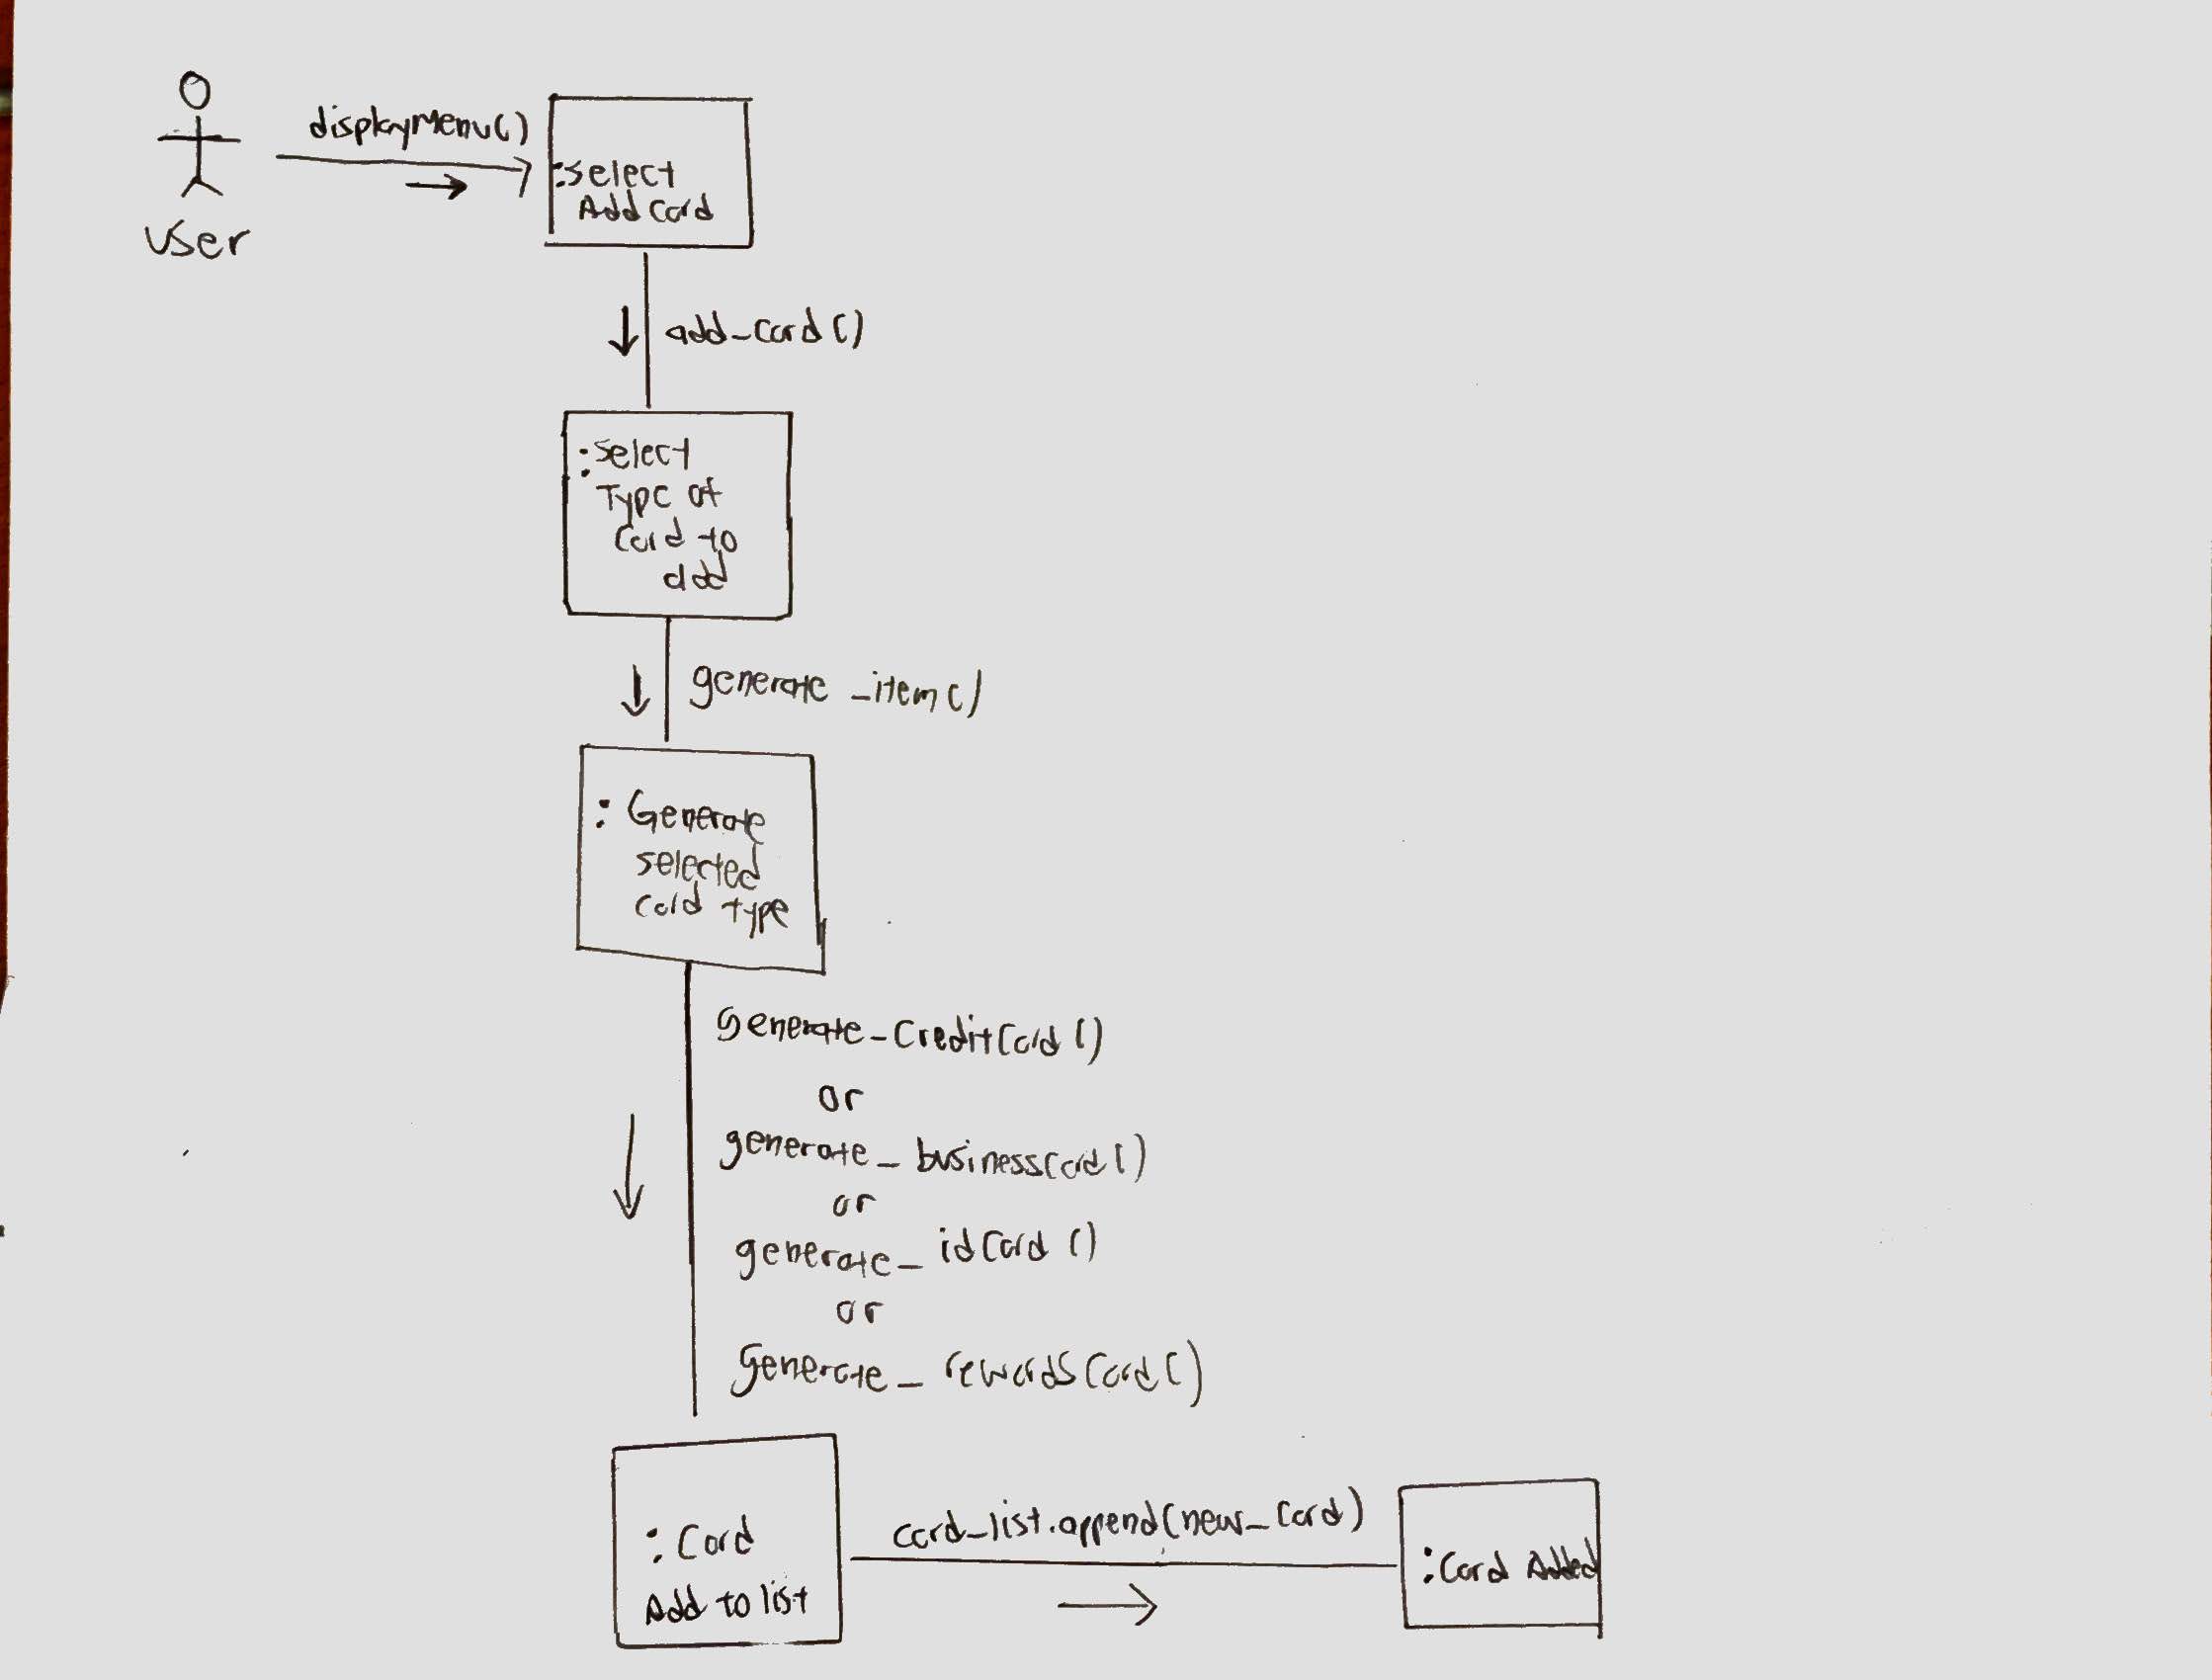 User
displayMenu()
:Select
Add Card
add_card()
:Select
Type of
Card to
add
generate_item()
: Generate
selected
card type
generate_CreditCard()
or
generate_businessCard()
or
generate_idCard()
or
generate_rewardsCard()
: Card
Add to list
card_list.append(new_Card)
:Card Added